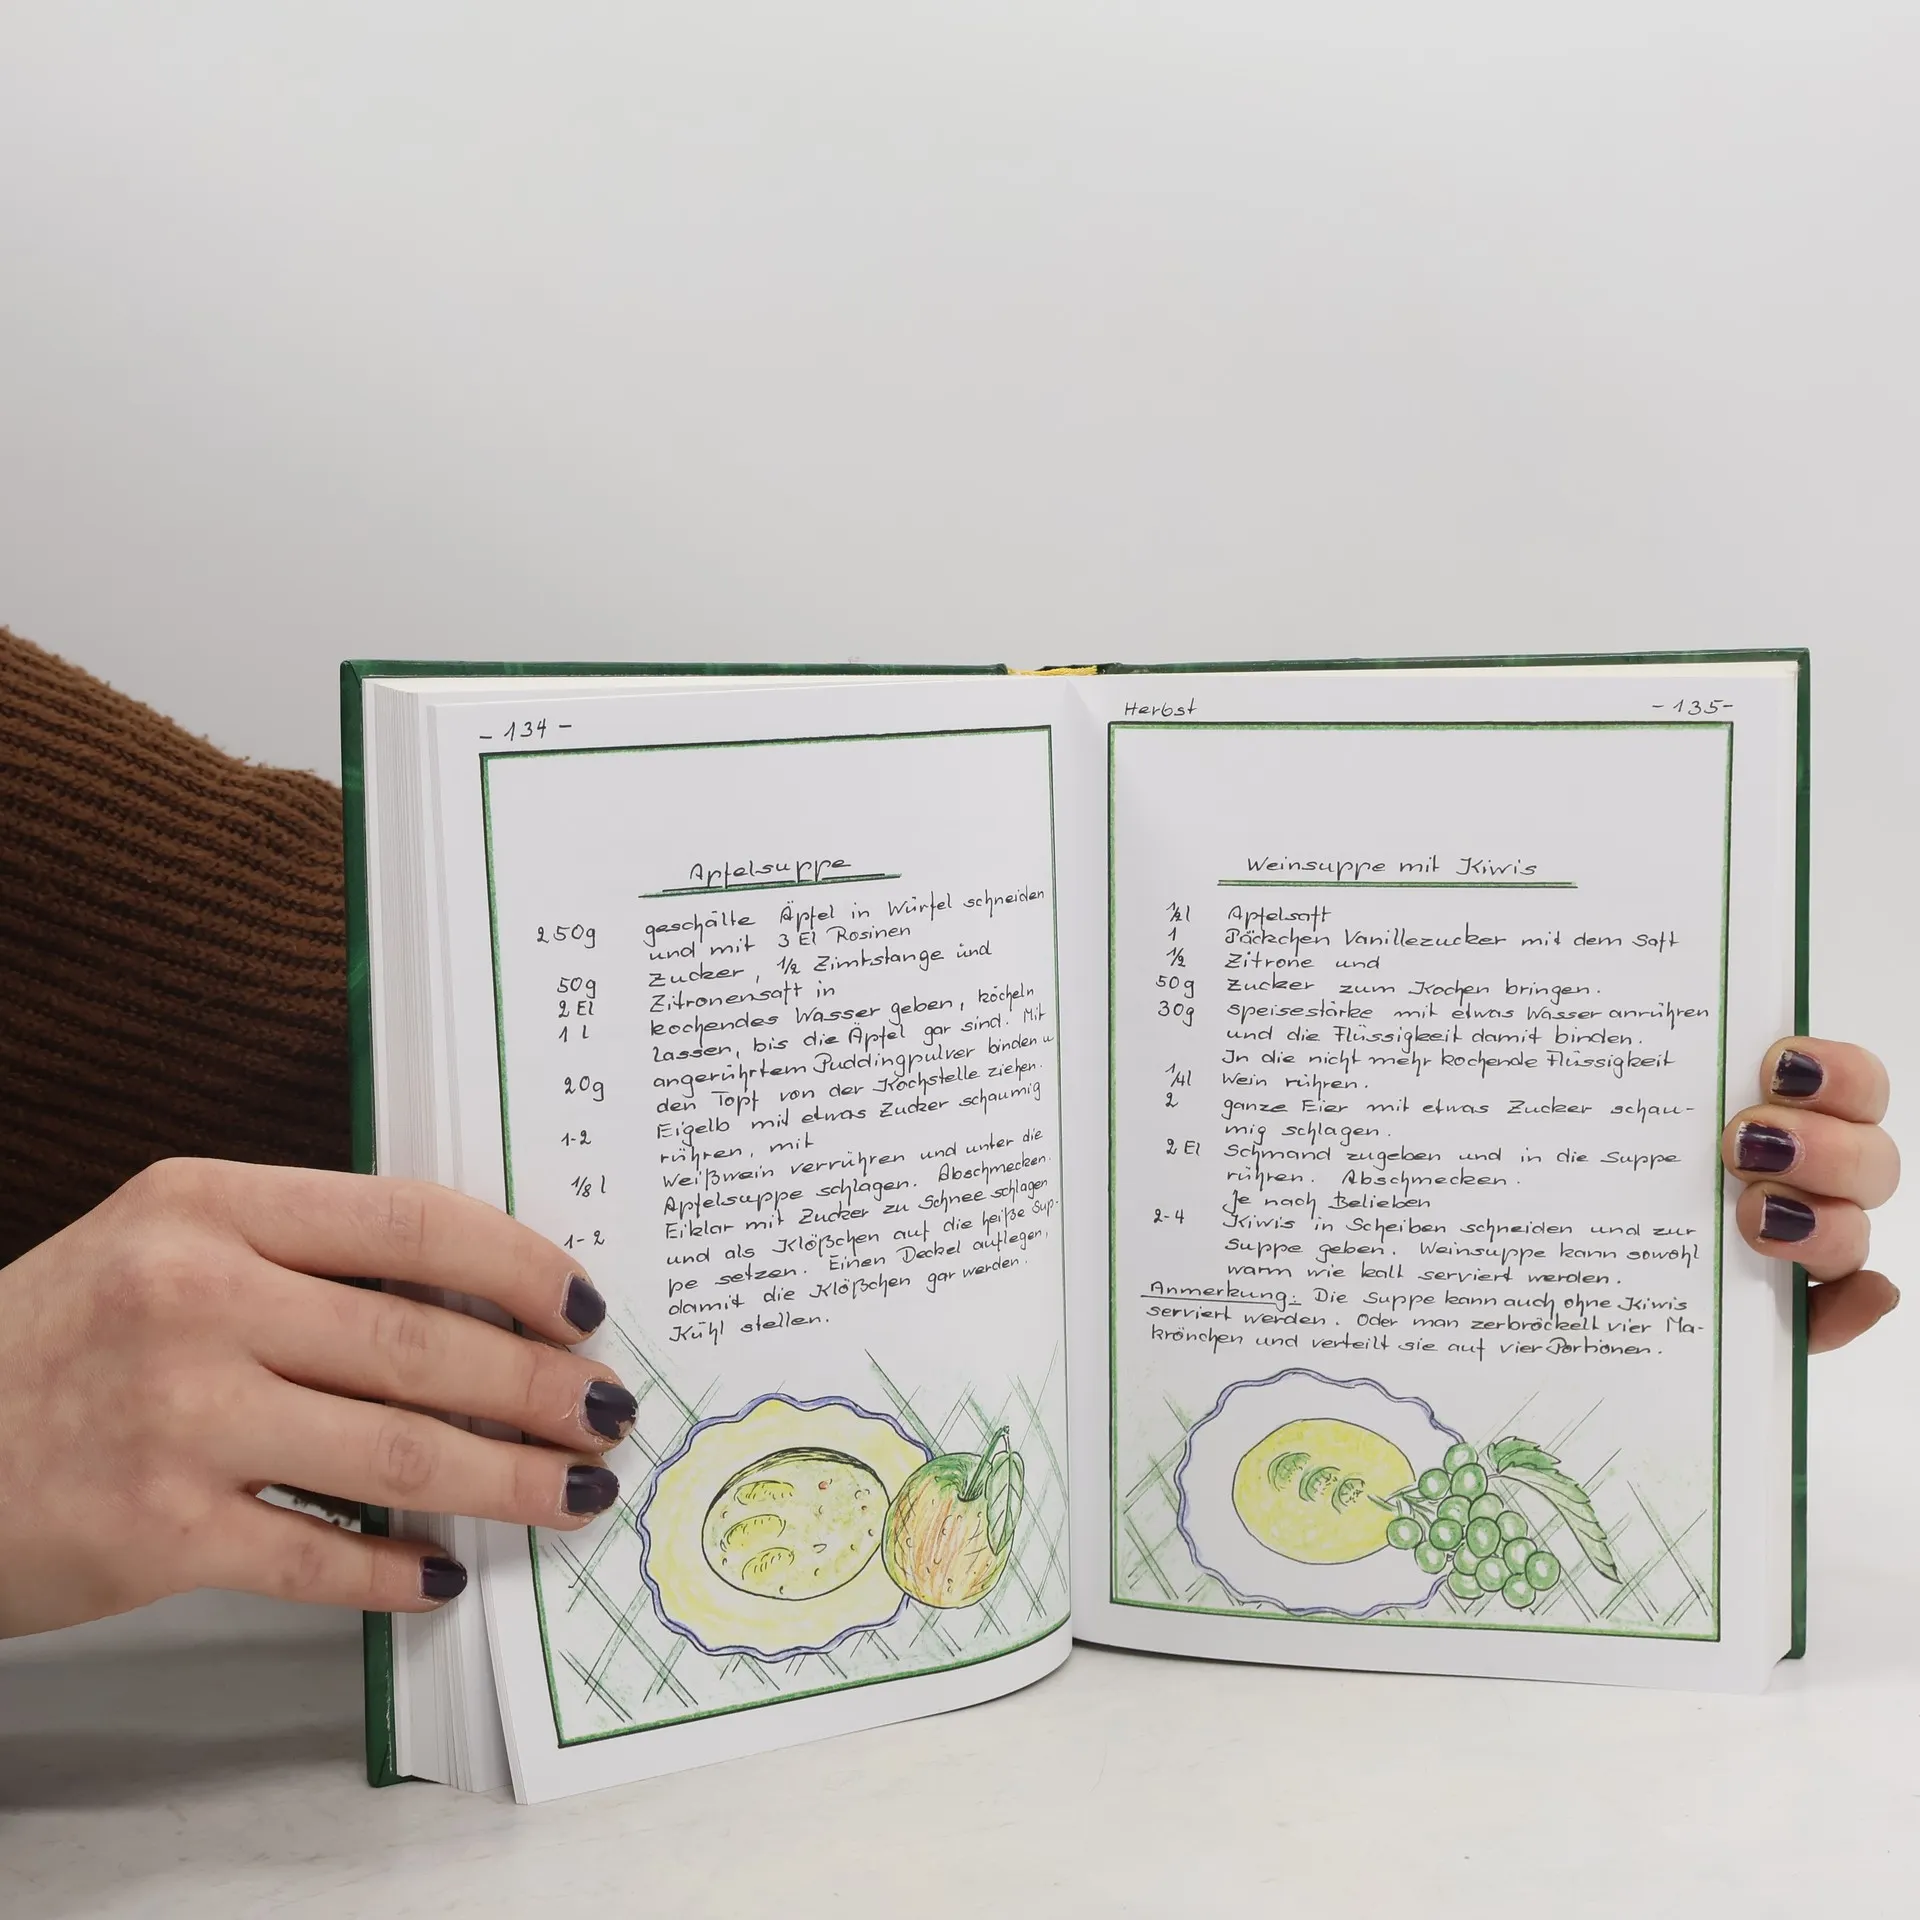 - 134 -
Apfelsuppe
250g geschälte Äpfel in Würfel schneiden
und mit 3 El Rosinen
50g Zucker, 1/2 Zimtstange und
2 El Zitronensaft in
1 l kochendes Wasser geben, köcheln
lassen, bis die Äpfel gar sind. Mit
20g angerührtem Puddingpulver binden u
den Topf von der Kochstelle ziehen.
1-2 Eigelb mit etwas Zucker schaumig
rühren, mit
1/8 l Weißwein verrühren und unter die
Apfelsuppe schlagen. Abschmecken.
1-2 Eiklar mit Zucker zu Schnee schlagen
und als Klößchen auf die heiße Sup-
pe setzen. Einen Deckel auflegen,
damit die Klößchen gar werden.
Kühl stellen.
Herbst - 135-
Weinsuppe mit Kiwis
1/2l Apfelsaft
1 Päckchen Vanillezucker mit dem Saft
1/2 Zitrone und
50g Zucker zum Kochen bringen.
30g Speisestärke mit etwas Wasser anrühren
und die Flüssigkeit damit binden.
In die nicht mehr kochende Flüssigkeit
1/4l Wein rühren.
2 ganze Eier mit etwas Zucker schau-
mig schlagen.
2 El Schmand zugeben und in die Suppe
rühren. Abschmecken.
Je nach Belieben
2-4 Kiwis in Scheiben schneiden und zur
Suppe geben. Weinsuppe kann sowohl
warm wie kalt serviert werden.
Anmerkung: Die Suppe kann auch ohne Kiwis
serviert werden. Oder man zerbröckelt vier Ma-
krönchen und verteilt sie auf vier Portionen.